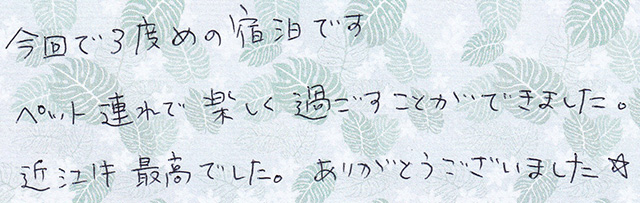 今回で3度めの宿泊です
ペット連れで楽しく過ごすことができました。
近江牛最高でした。ありがとうございました☆